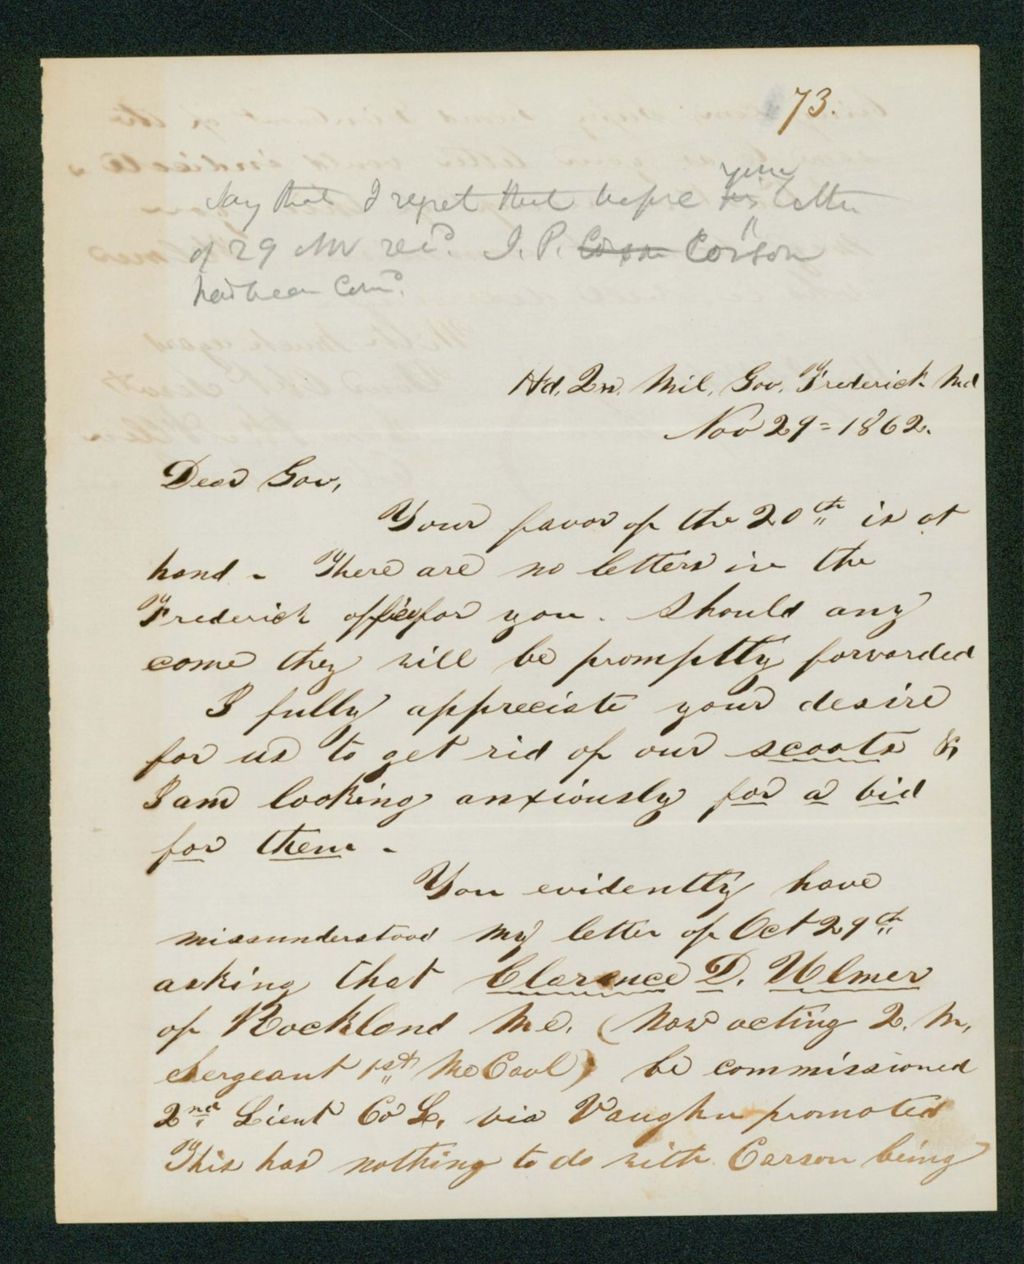 73.
Say that I regret that before his your letter
of 29 Nov recd. J. P. Carson
had been Comd.
Hd. Qrs. Mil. Gov. Frederick Md
Nov 29 = 1862.
Dear Gov,
Your favor of the 20th is at
hand - There are no letters in the
Frederick office for you. Should any
come they will be promptly forwarded
I fully appreciate your desire
for us to get rid of our scoots &
I am looking anxiously for a bid
for them -
You evidently have
missunderstood my letter of Oct 29th
asking that Clarence D. Ulmer
of Rockland Me. (Now acting Q. M.
Sergeant 1st Me Cavl) be commissioned
2nd Lieut Co L, via Vaughn promoted
This has nothing to do with Carson being